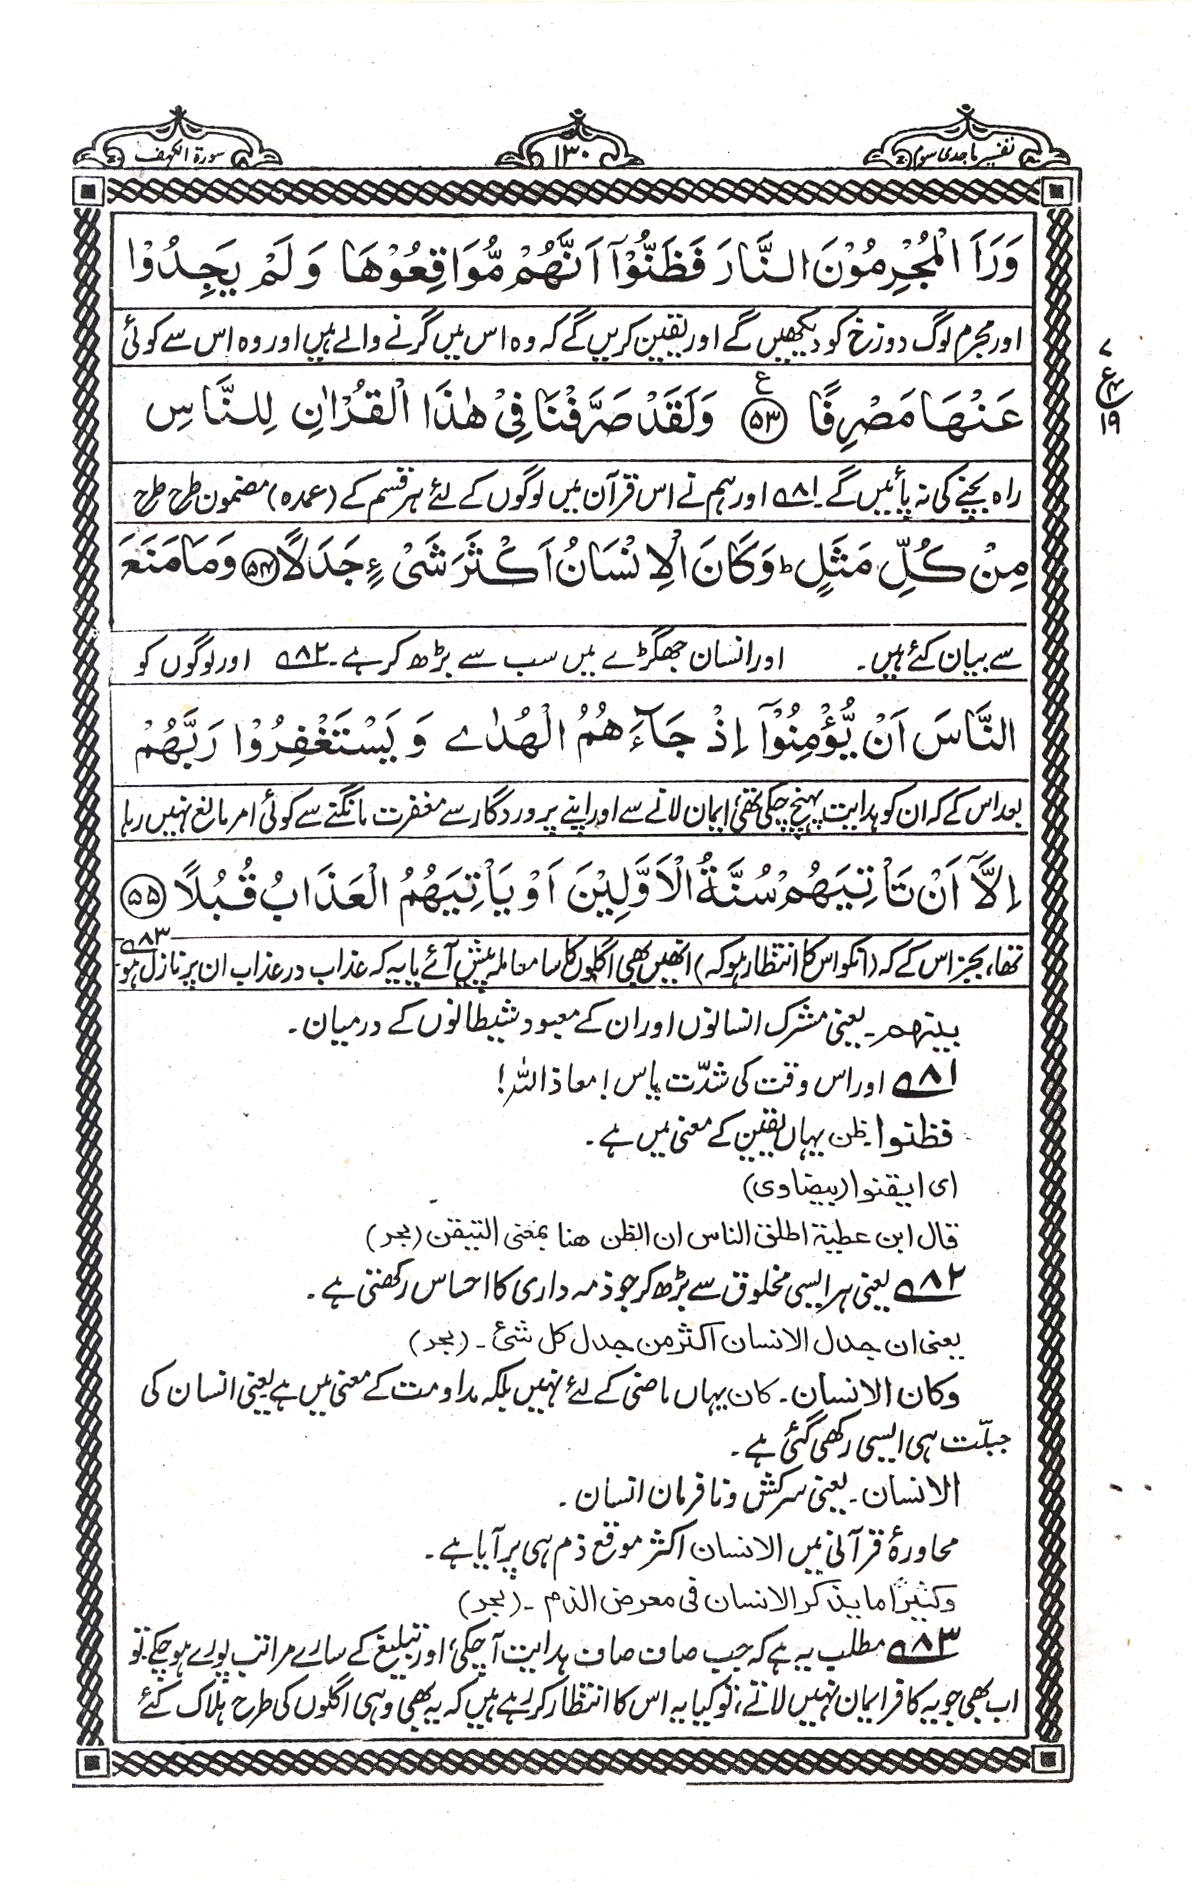 تفسیر ماجدی سوم
۱۳۰
سورۃ الکہف
وَرَاَ الْمُجْرِمُوْنَ النَّارَ فَظَنُّوْۤا اَنَّهُمْ مُّوَاقِعُوْهَا وَلَمْ یَجِدُوْا
اور مجرم لوگ دوزخ کو دیکھیں گے اور یقین کریں گے کہ وہ اس میں گرنے والے ہیں اور وہ اس سے کوئی
عَنْهَا مَصْرِفًا ﴿۵۳﴾ ع وَلَقَدْ صَرَّفْنَا فِیْ هٰذَا الْقُرْاٰنِ لِلنَّاسِ
۷
ع
۴
۱۹
راہ بچنے کی نہ پائیں گے۔ ۸۱ اور ہم نے اس قرآن میں لوگوں کے لئے ہر قسم کے (عمدہ) مضمون طرح طرح
مِنْ كُلِّ مَثَلٍ ؕ وَكَانَ الْاِنْسَانُ اَكْثَرَ شَیْءٍ جَدَلًا ﴿۵۴﴾ وَمَا مَنَعَ
سے بیان کئے ہیں۔ اور انسان جھگڑے میں سب سے بڑھ کر ہے۔ ۸۲ اور لوگوں کو
النَّاسَ اَنْ یُّؤْمِنُوْۤا اِذْ جَآءَهُمُ الْهُدٰی وَیَسْتَغْفِرُوْا رَبَّهُمْ
بعد اس کے کہ ان کو ہدایت پہنچ چکی تھی، ایمان لانے سے اور اپنے پروردگار سے مغفرت مانگنے سے کوئی امر مانع نہیں رہا
اِلَّاۤ اَنْ تَاْتِیَهُمْ سُنَّةُ الْاَوَّلِیْنَ اَوْ یَاْتِیَهُمُ الْعَذَابُ قُبُلًا ﴿۵۵﴾
تھا، بجز اس کے کہ (انکو اس کا انتظار ہو کہ) انھیں بھی اگلوں کا سا معاملہ پیش آئے یا یہ کہ عذاب در عذاب ان پر نازل ہو ۸۳
بینھم۔ یعنی مشرک انسانوں اور ان کے معبود شیطانوں کے درمیان۔
۸۱ اور اس وقت کی شدّت یاس! معاذ اللہ!
فظنوا۔ ظن یہاں یقین کے معنی میں ہے۔
ای ایقنوا (بیضاوی)
قال ابن عطیة اطلق الناس ان الظن هنا بمعنی التیقن (بحر)
۸۲ یعنی ہر ایسی مخلوق سے بڑھ کر جو ذمہ داری کا احساس رکھتی ہے۔
یعنی ان جدل الانسان اکثر من جدل کل شئ۔ (بحر)
وکان الانسان۔ کان یہاں ماضی کے لئے نہیں بلکہ مداومت کے معنی میں ہے یعنی انسان کی
جبلّت ہی ایسی رکھی گئی ہے۔
الانسان۔ یعنی سرکش و نافرمان انسان۔
محاورۂ قرآنی میں الانسان اکثر موقع ذم ہی پر آیا ہے۔
وکثیرًا ما یذکر الانسان فی معرض الذم۔ (بحر)
۸۳ مطلب یہ ہے کہ جب صاف صاف ہدایت آچکی، اور تبلیغ کے سارے مراتب پورے ہو چکے، تو
اب بھی جو یہ کافر ایمان نہیں لاتے، تو کیا یہ اس کا انتظار کر رہے ہیں کہ یہ بھی وہی اگلوں کی طرح ہلاک کئے